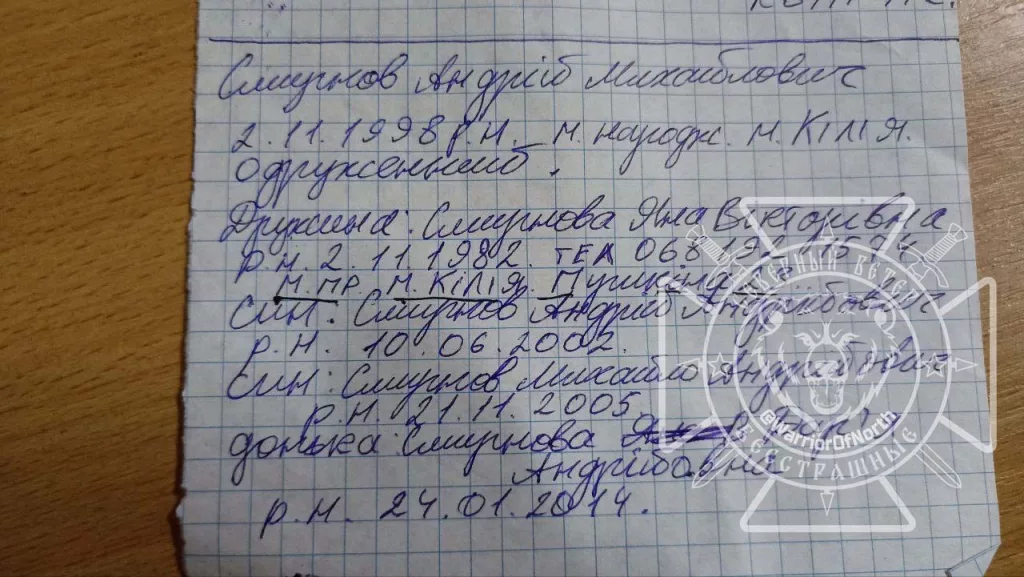 Смирнов Андрій Михайлович
2.11.1998 р.н. м. народж. м. Кілія.
одружений.
Дружина: Смирнова Яна Вікторівна
р.н. 2.11.1982. тел 068 192
м. пр. м. Кілія. Пушкіна
Син: Смирнов Андрій Андрійович
р.н. 10.06.2002.
Син: Смирнов Михайло Андрійович
р.н. 21.11.2005
донька: Смирнова
Андріївна
р.н. 24.01.2014.
СЕВЕРНЫЙ ВЕТЕР
@WarriorOfNorth
БЕССТРАШНЫЕ